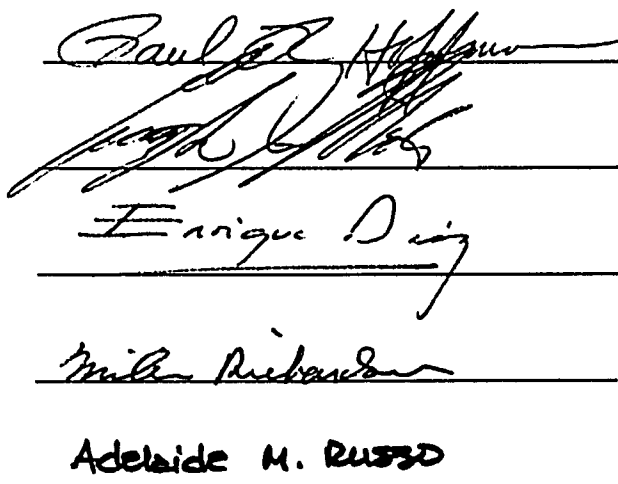 Paul Hoffman
Joseph
Enrique Diaz
Miles Richardson
Adelaide M. RUSSO